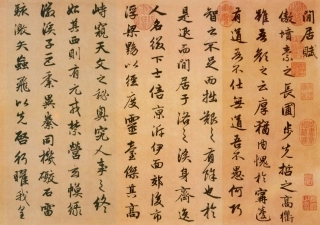 閒居賦
傲墳素之長圃步先哲之高衢
雖吾顏之云厚猶内愧於甯蘧
有道吾不仕無道吾不愚何巧
智之不足而拙艱之有餘也於
是退而閒居于洛之涘身齊逸
人名綴下士倍京泝伊面郊後市
浮梁黝以徑度靈臺傑其高
峙窺天文之秘奥究人事之終
始其西則有元戎禁營玄幙緑
徽谿子巨黍異絭同機礮石雷
駭激矢蝱飛以先啓行曜我皇